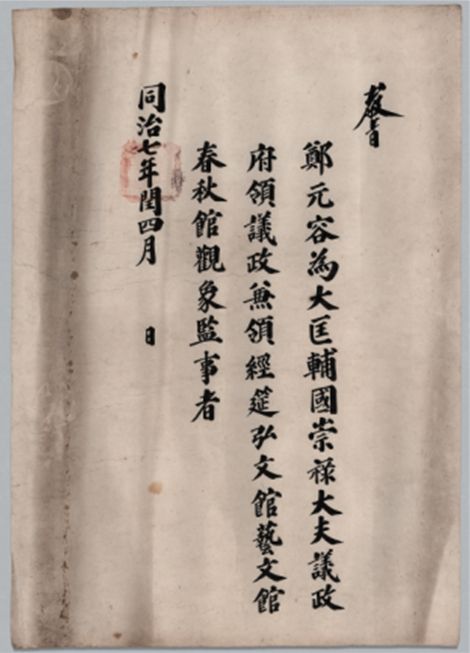 敎旨
鄭元容為大匡輔國崇祿大夫議政
府領議政兼領經筵弘文館藝文館
春秋館觀象監事者
同治七年閏四月 日